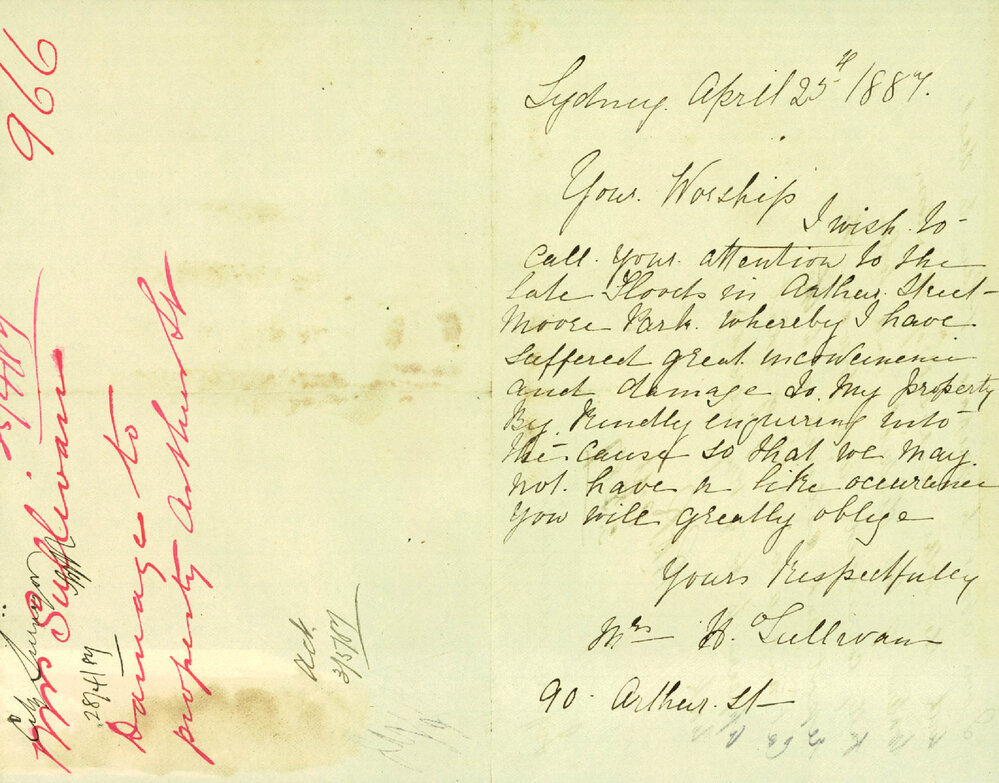 Sydney April 25th 1887.
Your Worship
I wish to
Call Your attention to the
late Floods in Arthur Street
Moore Park. whereby I have
suffered great inconvenience
and damage to My Property
By Kindly enquiring into
the cause so that we may
not have a like occurance
You will greatly oblige
Yours Respectfully
Mrs H. Sullivan
90 Arthur St
966
25/4/87
Mrs Sullivan
City Surveyor
28/4/87
Damage to
property Arthur St
Ack.
3/5/87